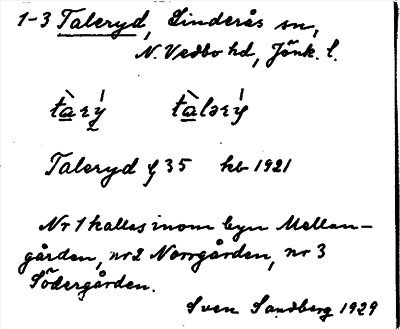 1-3 Taleryd, Linderås sn,
N. Vedbo hd, Jönk. l.
Taleryd 35 kb 1921
Nr 1 kallas inom byn Mellan-
gården, nr 2 Norrgården, nr 3
Södergården.
Sven Sandberg 1929